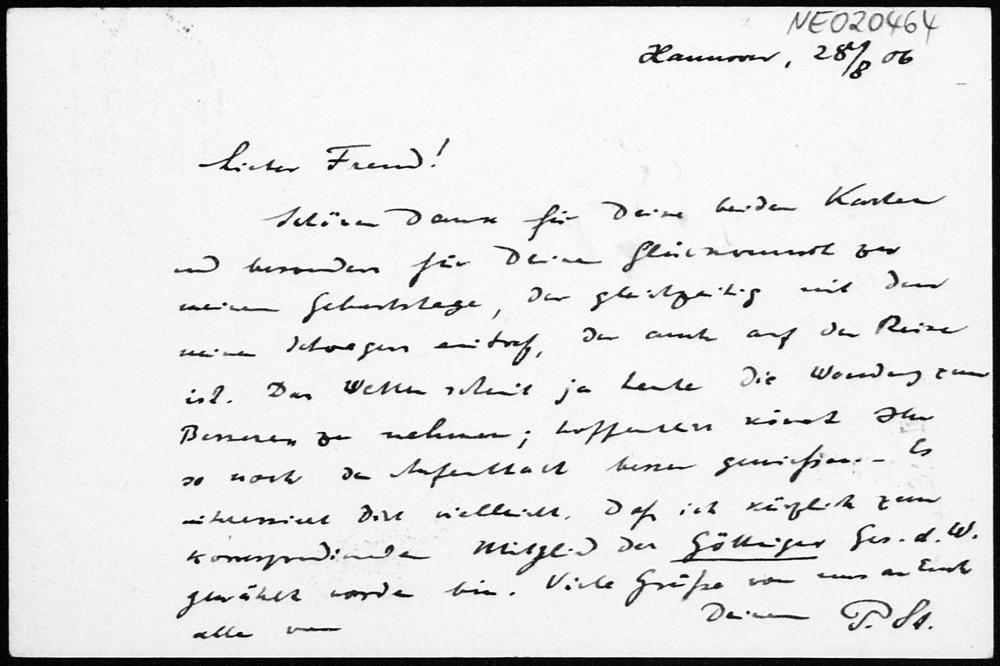 NE020464
Hannover, 28/8 06
Lieber Freund!
Schönen Dank für Deine beiden Karten
und besonders für Deinen Glückwunsch zu
meinem Geburtstage, der gleichzeitig mit dem
meines Schwagers eintraf, der auch auf der Reise
ist. Das Wetter scheint ja heute die Wendung zum
Besseren zu nehmen; hoffentlich könnt Ihr
so noch den Aufenthalt besser genießen. – Es
interessiert Dich vielleicht, daß ich kürzlich zum
korrespondierenden Mitglied der Göttinger Ges. d. W.
gewählt worden bin. Viele Grüße von uns an Euch
alle von Deinem P. St.